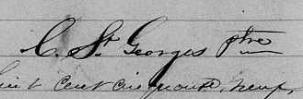 C. St Georges ptre
huit cent cinquante neuf,